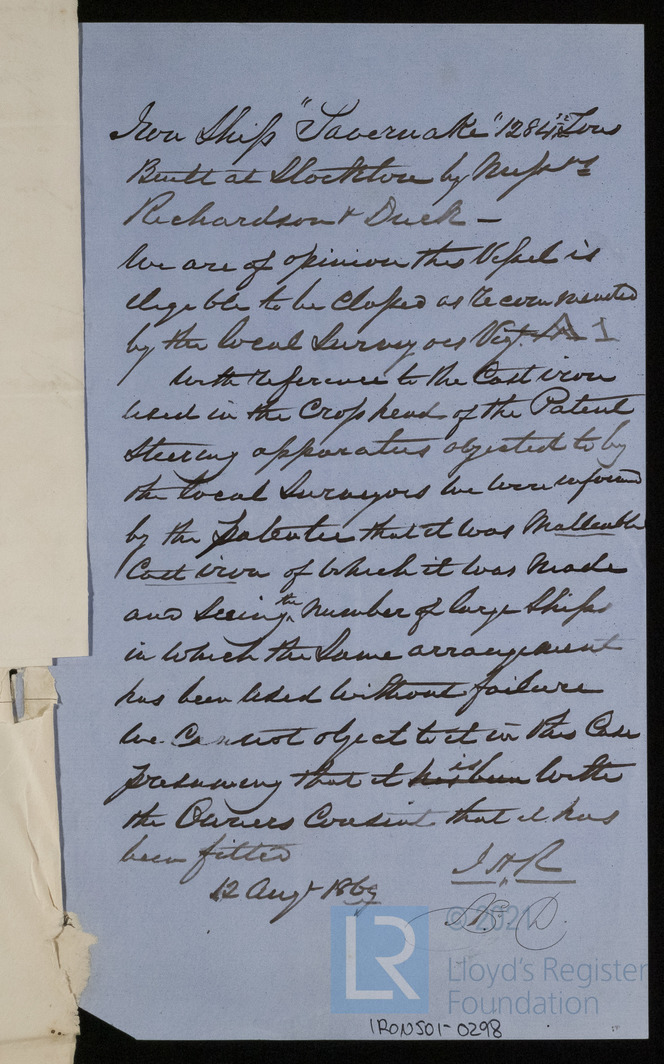 Iron Ship "Tavernake" 1284 Tons
Built at Stockton by Messrs
Richardson & Duck —
We are of opinion this Vessel is
elegible to be Classed as recommended
by the Local Surveyors Vizt. A 1
With reference to the Cast iron
used in the Crosshead of the Patent
Steering apparatus objected to by
the Local Surveyors we were informed
by the patentee that it was Malleable
Cast iron of which it was Made
and Seeing the Number of large Ships
in which the Same arrangement
has been Used Without failure
We Cannot object to it in this Case
presuming that it has been is With
the Owners Consent that it has
been fitted
12 Augt 1869
J.H.R
© 2021
Lloyd's Register
Foundation
LR
IRON501-0298